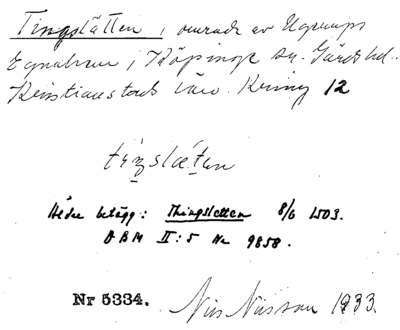 Tingslätten, område av Ugerups
Egnahem i Köpinge sn. Gärds hd.
Kristianstads län. Kring 12
tiŋslætən
Äldre belägg: Thingsletten 8/6 1503.
DBM II:5 Nr 9858.
Nr 5334. Nils Nilsson 1933.